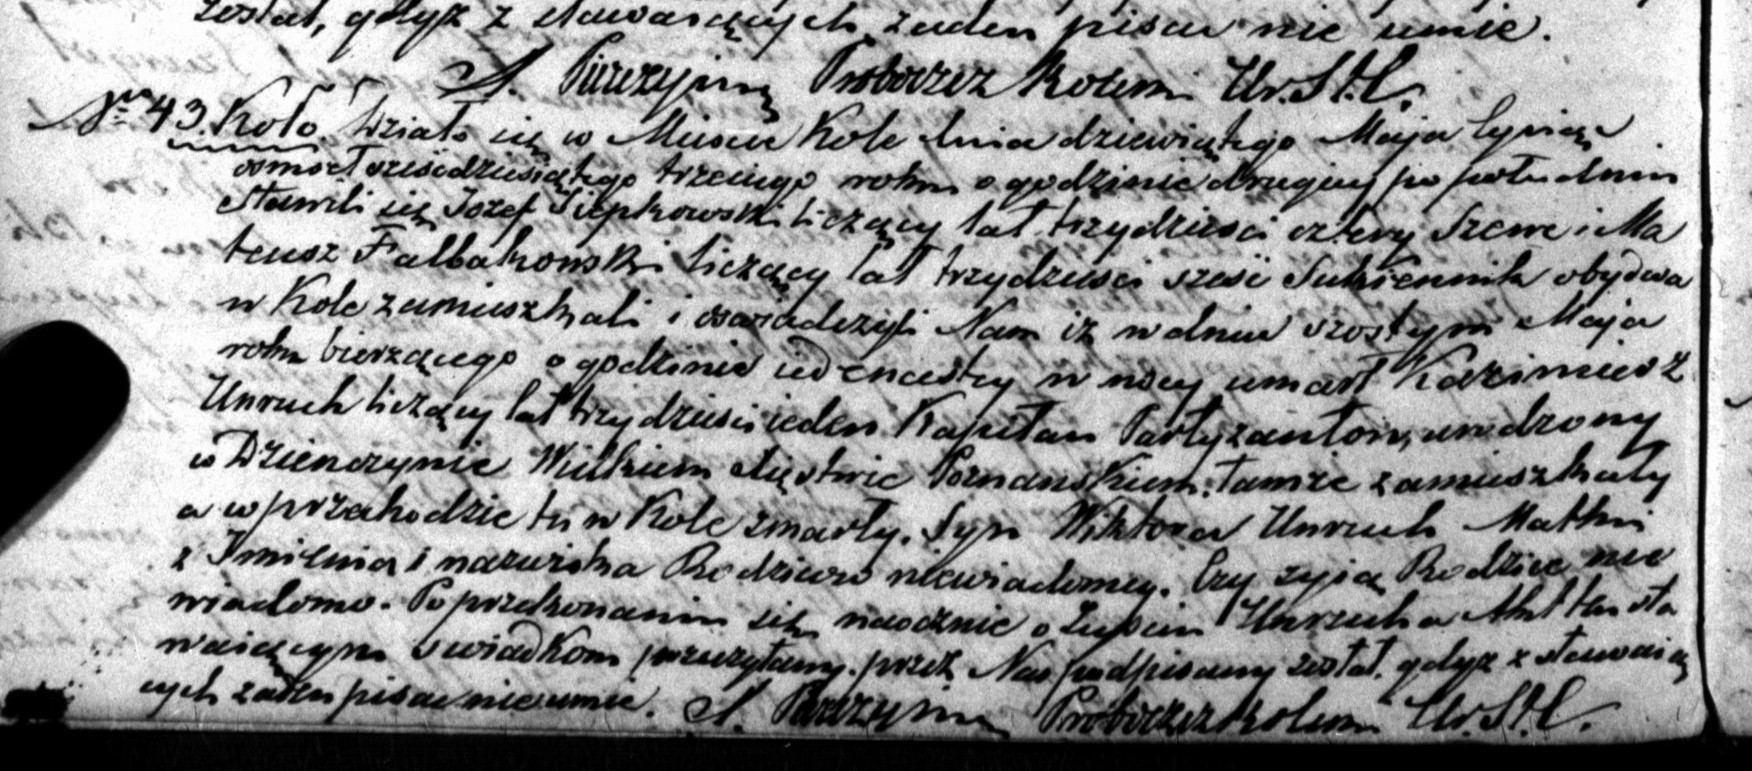 został, gdyż z stawaiących żaden pisać nie umie.
Proboszcz Kolski Ur. S. C.
No 43. Koło. Działo się w Mieście Kole dnia dziewiątego Maja tysiąc
osmset sześćdziesiątego trzeciego roku o godzinie drugiey po południu
stawili się Jozef Siepkowski liczący lat trzydzieści cztery Szewc i Ma
teusz Falbakowski liczący lat trzydzieści sześć Sukiennik obydwa
w Kole zamieszkali i oswiadczyli Nam iż w dniu szostym Maja
roku bierzącego o godzinie iedenastey w nocy umarł Kazimierz
Unruch liczący lat trzydzieści ieden Kapitan Partyzantow, urodzony
w Dzienczynie Wielkiem Xięstwie Poznanskiem, tamże zamieszkały
a w przehodzie tu w Kole zmarły. Syn Wiktora Unruch Matki
z Imienia i nazwiska Rodziców niewiadomey. Czy żyią Rodzice nie
wiadomo. Po przekonaniu się naocznie o Zeyściu Unrucha Akt ten sta
waiącym swiadkom przeczytany przez Nas podpisany został, gdyż z stawaią
cych żaden pisać nie umie. Proboszcz Kolski Ur. S. C.